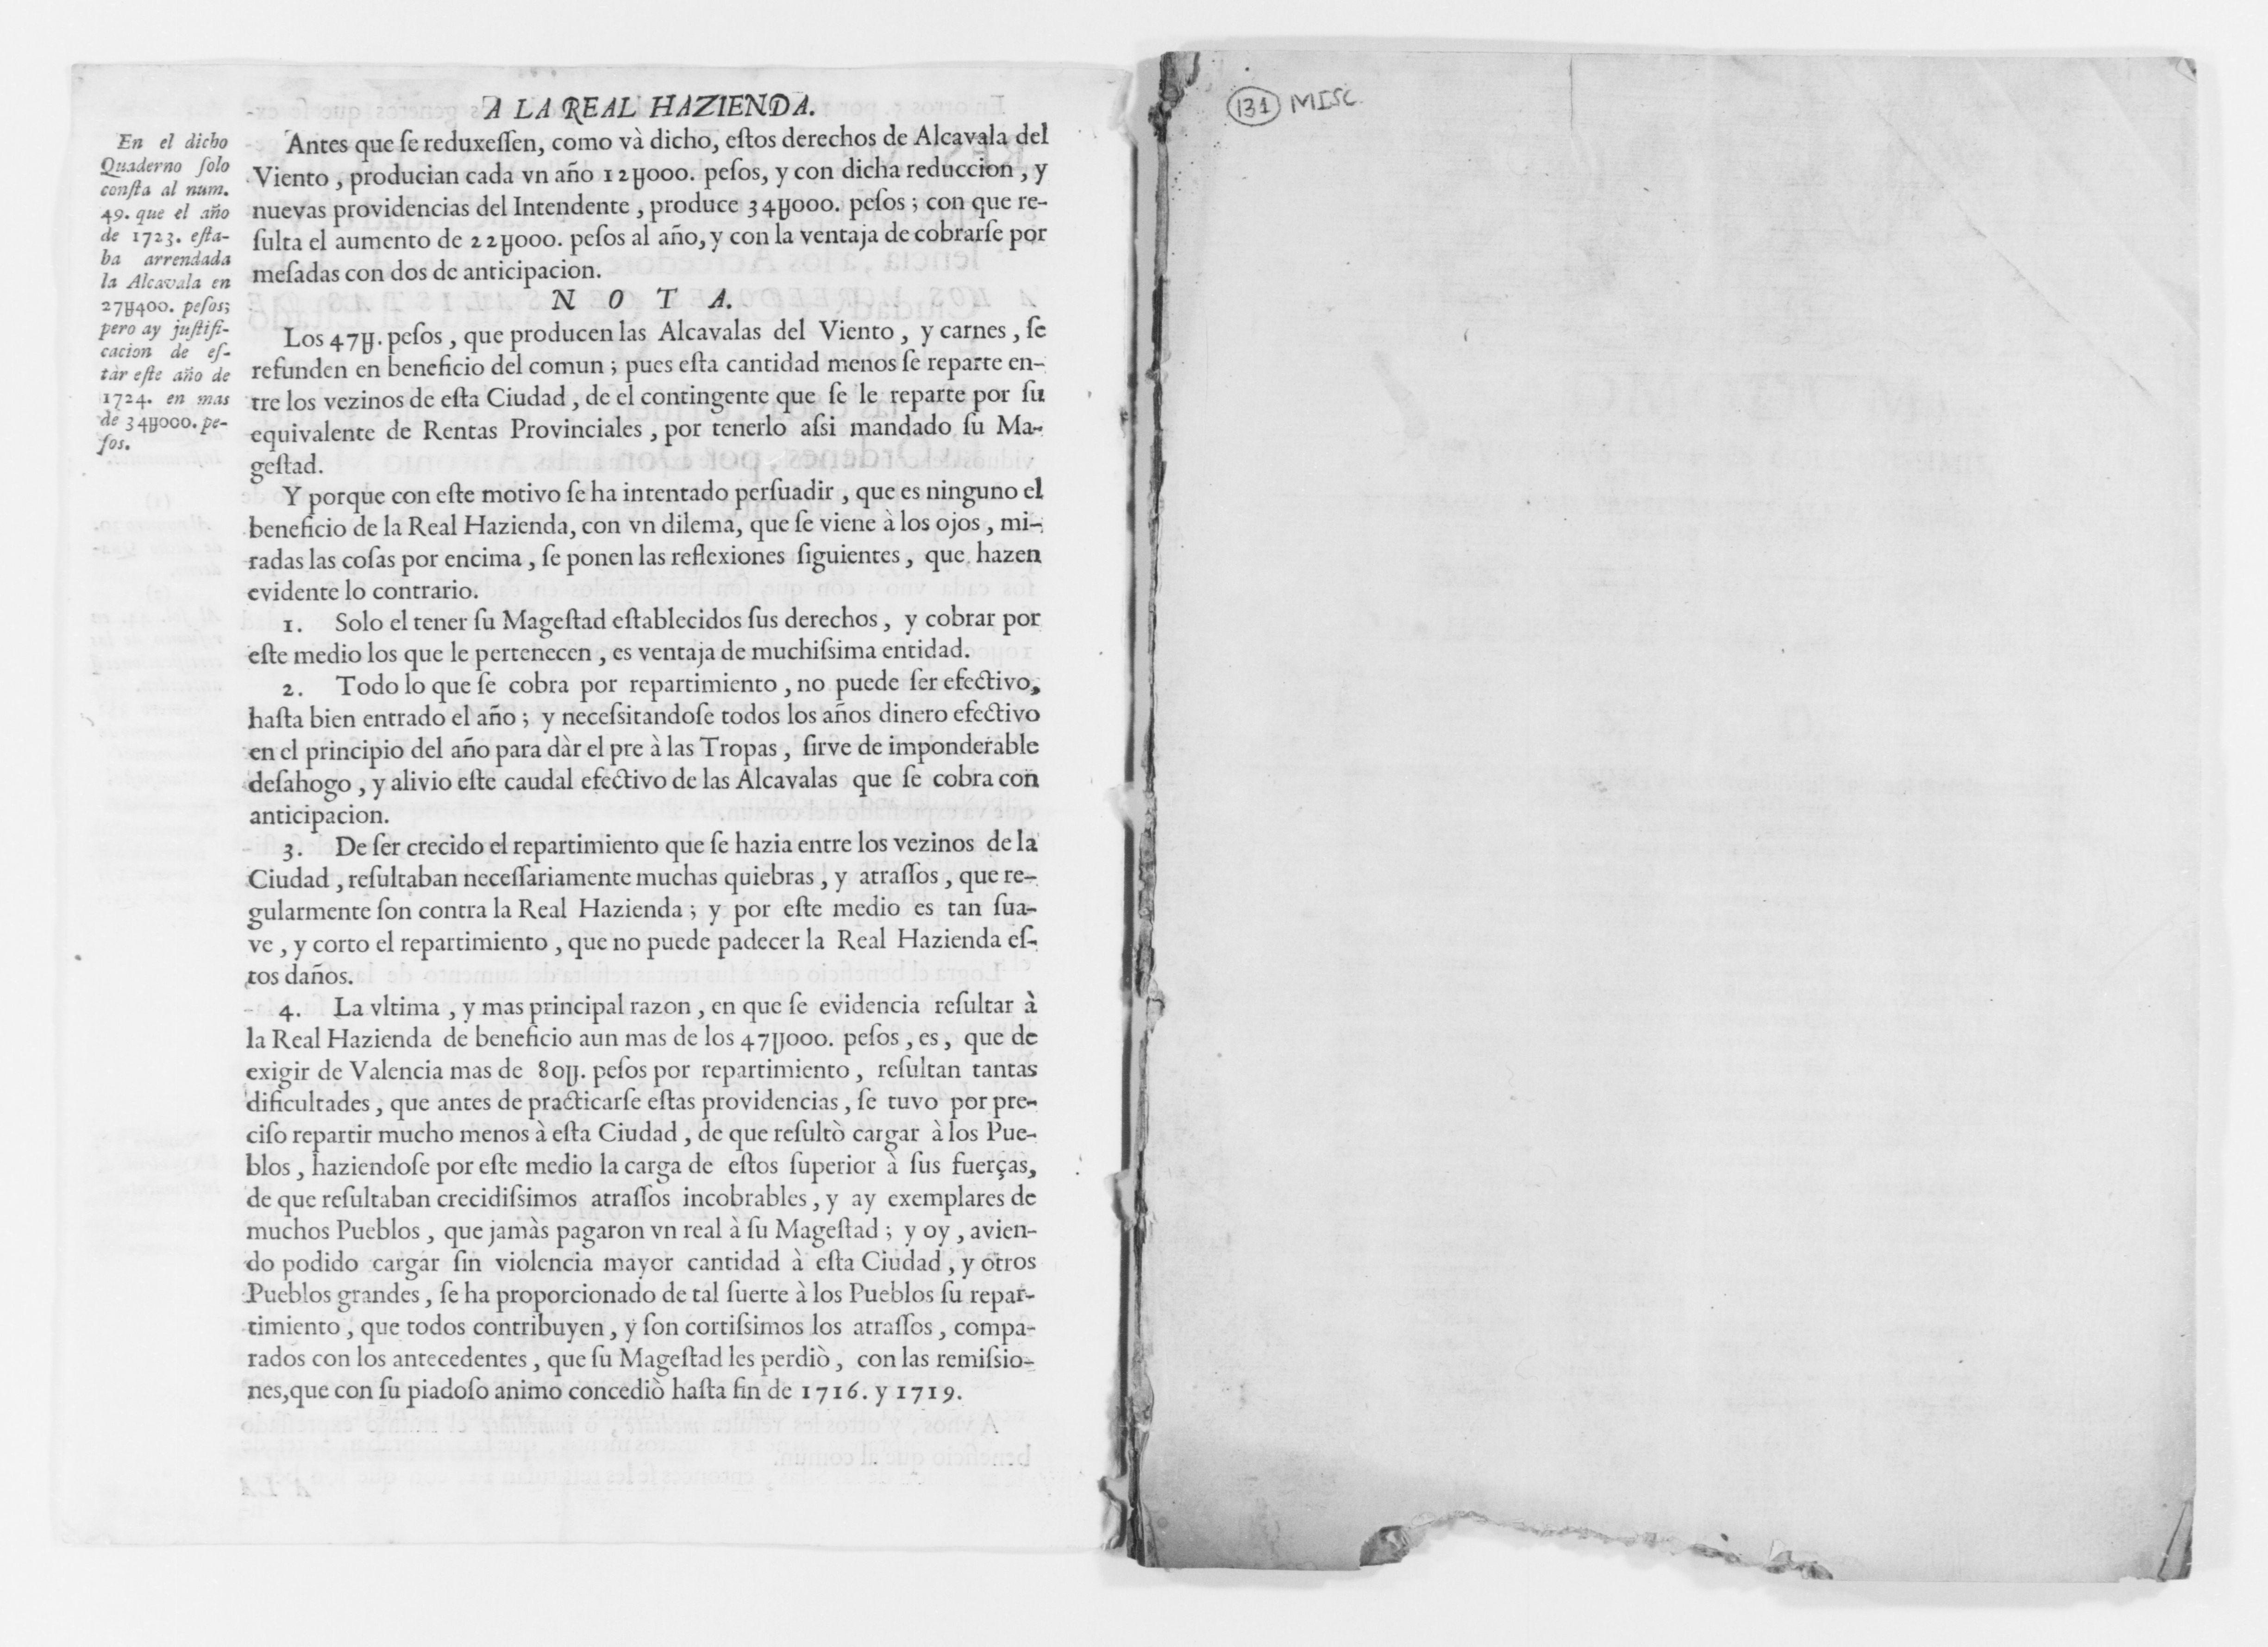 A LA REAL HAZIENDA.
En el dicho
Quaderno ſolo
conſta al num.
49. que el año
de 1723. eſta-
ba arrendada
la Alcavala en
27ȣ400. peſos;
pero ay juſtifi-
cacion de eſ-
tàr eſte año de
1724. en mas
de 34ȣ000. pe-
ſos.
Antes que ſe reduxeſſen, como và dicho, eſtos derechos de Alcavala del
Viento, producian cada vn año 12ȣ000. peſos, y con dicha reduccion, y
nuevas providencias del Intendente, produce 34ȣ000. peſos; con que re-
ſulta el aumento de 22ȣ000. peſos al año, y con la ventaja de cobrarſe por
meſadas con dos de anticipacion.
N O T A.
Los 47ȣ. peſos, que producen las Alcavalas del Viento, y carnes, ſe
refunden en beneficio del comun; pues eſta cantidad menos ſe reparte en-
tre los vezinos de eſta Ciudad, de el contingente que ſe le reparte por ſu
equivalente de Rentas Provinciales, por tenerlo aſsi mandado ſu Ma-
geſtad.
Y porque con eſte motivo ſe ha intentado perſuadir, que es ninguno el
beneficio de la Real Hazienda, con vn dilema, que ſe viene à los ojos, mi-
radas las coſas por encima, ſe ponen las reflexiones ſiguientes, que hazen
evidente lo contrario.
1. Solo el tener ſu Mageſtad eſtablecidos ſus derechos, y cobrar por
eſte medio los que le pertenecen, es ventaja de muchiſsima entidad.
2. Todo lo que ſe cobra por repartimiento, no puede ſer efectivo,
haſta bien entrado el año; y neceſsitandoſe todos los años dinero efectivo
en el principio del año para dàr el pre à las Tropas, ſirve de imponderable
deſahogo, y alivio eſte caudal efectivo de las Alcavalas que ſe cobra con
anticipacion.
3. De ſer crecido el repartimiento que ſe hazia entre los vezinos de la
Ciudad, reſultaban neceſſariamente muchas quiebras, y atraſſos, que re-
gularmente ſon contra la Real Hazienda; y por eſte medio es tan ſua-
ve, y corto el repartimiento, que no puede padecer la Real Hazienda eſ-
tos daños.
4. La vltima, y mas principal razon, en que ſe evidencia reſultar à
la Real Hazienda de beneficio aun mas de los 47ȣ000. peſos, es, que de
exigir de Valencia mas de 80ȣ. peſos por repartimiento, reſultan tantas
dificultades, que antes de practicarſe eſtas providencias, ſe tuvo por pre-
ciſo repartir mucho menos à eſta Ciudad, de que reſultò cargar à los Pue-
blos, haziendoſe por eſte medio la carga de eſtos ſuperior à ſus fuerças,
de que reſultaban crecidiſsimos atraſſos incobrables, y ay exemplares de
muchos Pueblos, que jamàs pagaron vn real à ſu Mageſtad; y oy, avien-
do podido cargar ſin violencia mayor cantidad à eſta Ciudad, y otros
Pueblos grandes, ſe ha proporcionado de tal ſuerte à los Pueblos ſu repar-
timiento, que todos contribuyen, y ſon cortiſsimos los atraſſos, compa-
rados con los antecedentes, que ſu Mageſtad les perdiò, con las remiſsio-
nes, que con ſu piadoſo animo concediò haſta fin de 1716. y 1719.
131 MISC.